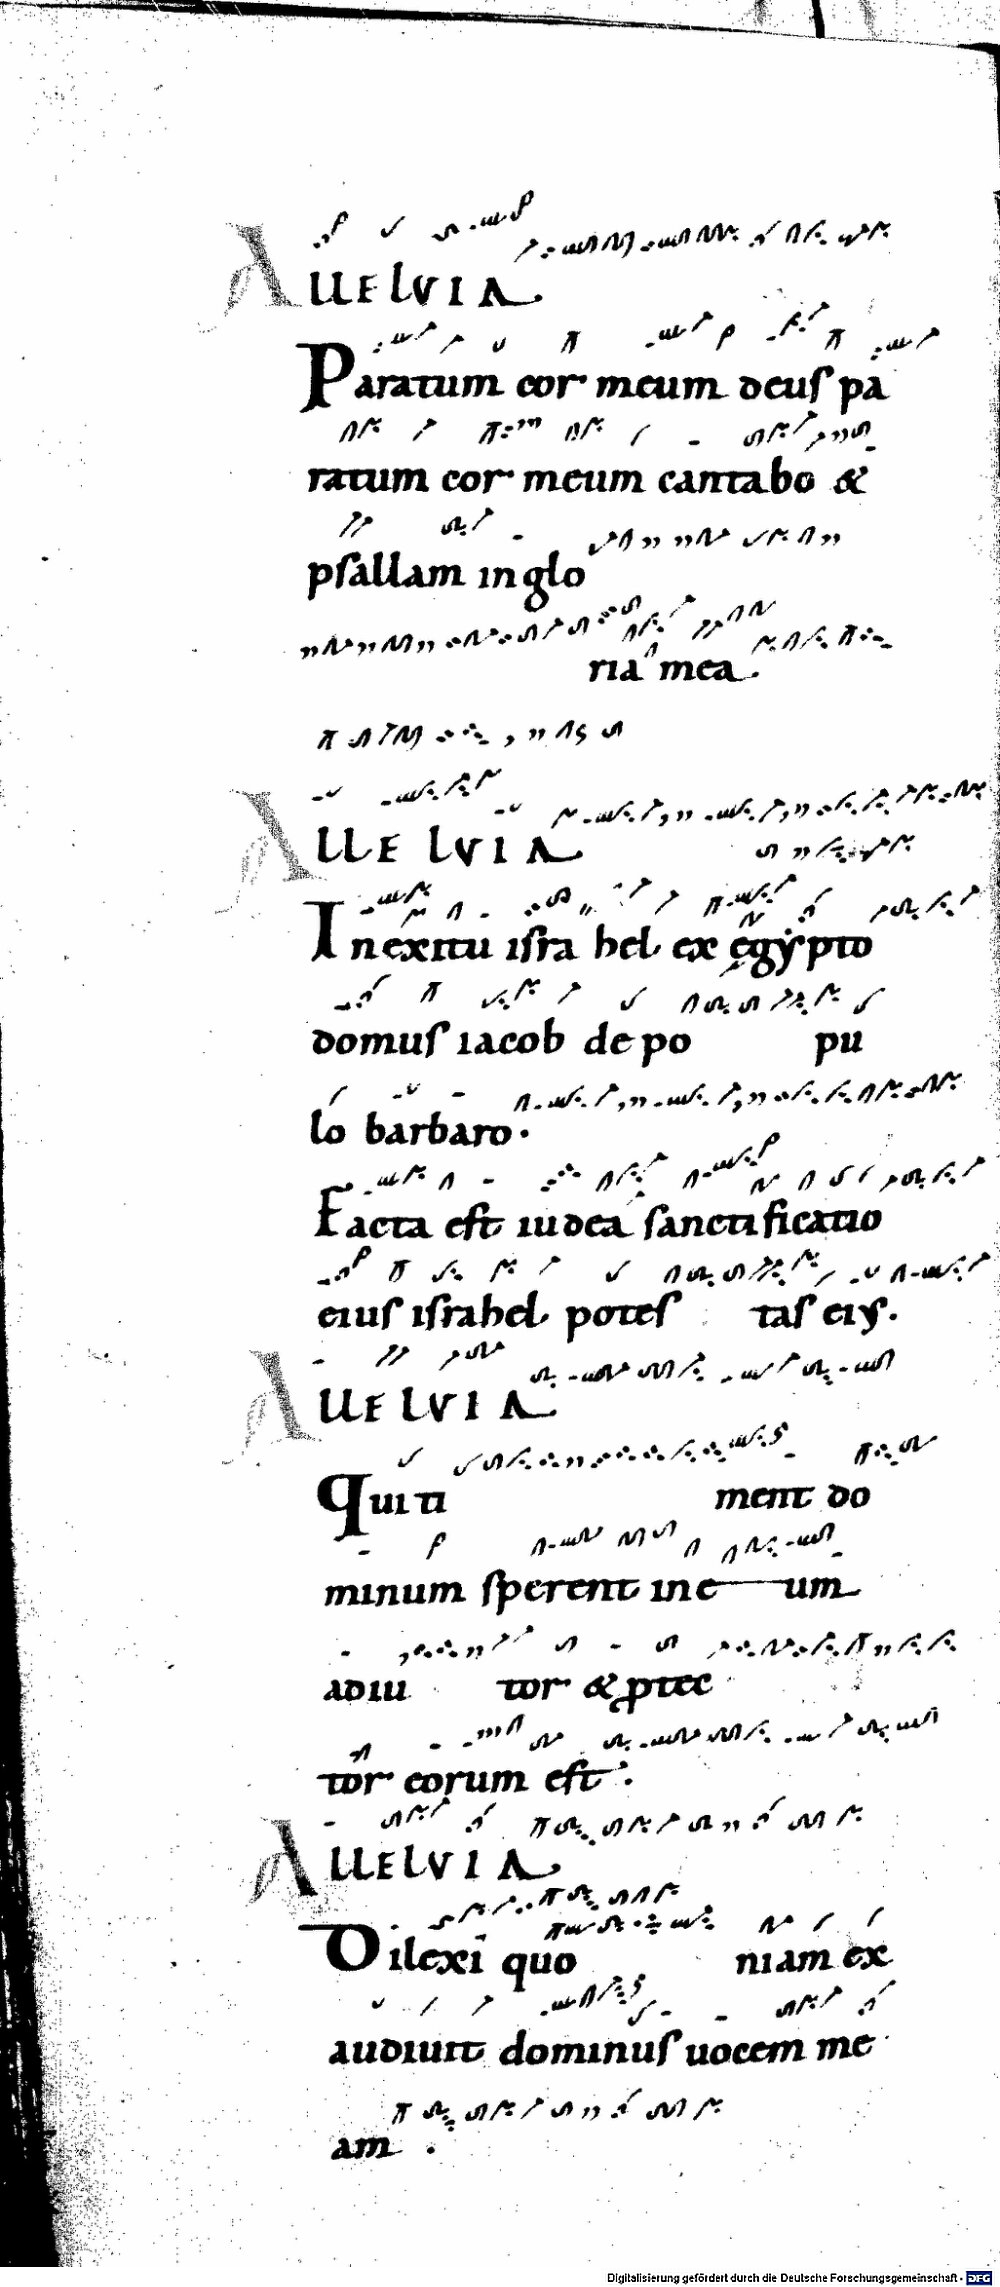 ALLELVIA.
Paratum cor meum deus pa
ratum cor meum cantabo &
psallam in glo
ria mea.
ALLELVIA
In exitu isra hel ex egypto
domus iacob de po pu
lo barbaro.
Facta est iudea sanctificatio
eius israhel potes tas eiꝰ.
ALLELVIA
Qui ti ment do
minum sperent in e um
adiu tor & ꝓtec
tor eorum est.
ALLELVIA
Dilexi quo niam ex
audiuit dominus uocem me
am.
Digitalisierung gefördert durch die Deutsche Forschungsgemeinschaft - DFG